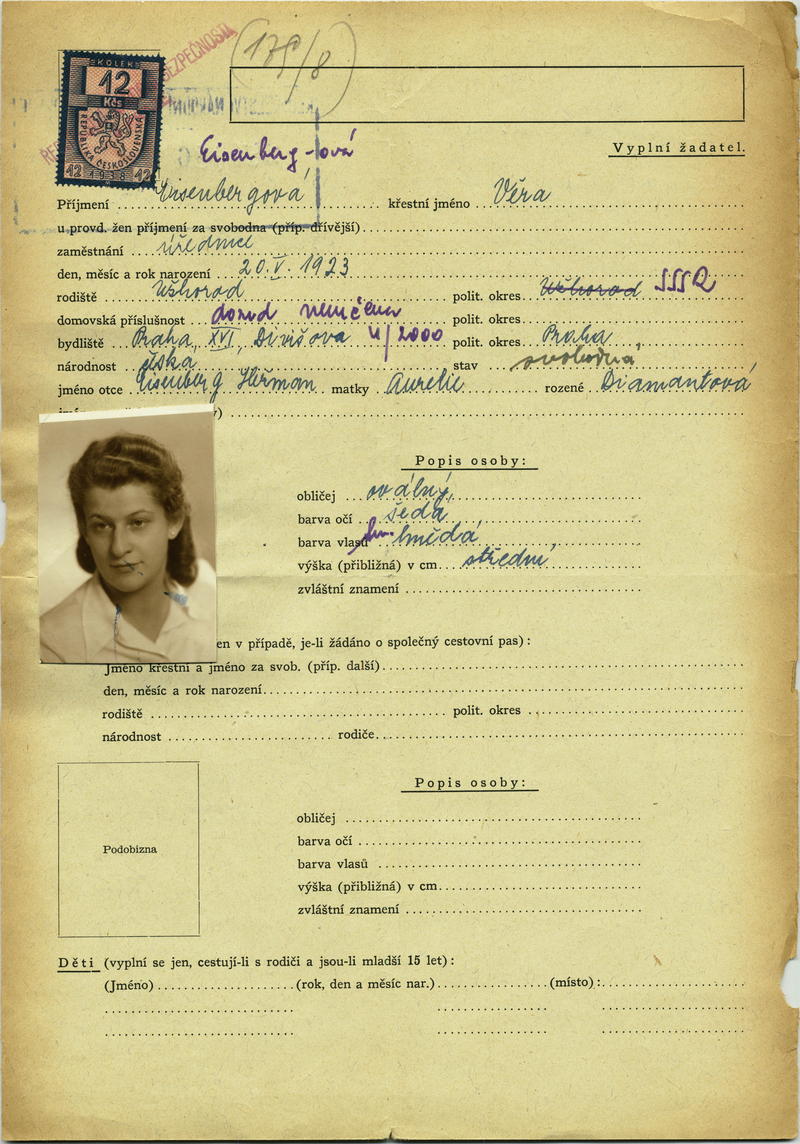 (175/8)
KOLEK
12
Kčs
REPUBLIKA ČESKOSLOVENSKÁ
12 1938 12
BEZPEČNOSTI
Eisenberg-ová
Vyplní žadatel.
Příjmení Eisenbergová, křestní jméno Věra
u provd. žen příjmení za svobodna (příp. dřívější)
zaměstnání úřednice
den, měsíc a rok narození 20.V.1923
rodiště Užhorod polit. okres Užhorod SSSR
domovská příslušnost dosud neurčena polit. okres
bydliště Praha, XVI, Divišova 4/2000 polit. okres Praha
národnost česká stav svobodná,
jméno otce Eisenberg Heřman matky Aurelie rozené Diamantová
Popis osoby:
obličej oválný,
barva očí šedá
barva vlasů hnědá,
výška (přibližná) v cm střední,
zvláštní znamení
en v případě, je-li žádáno o společný cestovní pas) :
Jméno křestní a jméno za svob. (příp. další)
den, měsíc a rok narození
rodiště polit. okres
národnost rodiče
Popis osoby:
obličej
barva očí
barva vlasů
výška (přibližná) v cm
zvláštní znamení
Podobizna
Děti (vyplní se jen, cestují-li s rodiči a jsou-li mladší 15 let) :
(Jméno) (rok, den a měsíc nar.) (místo) :